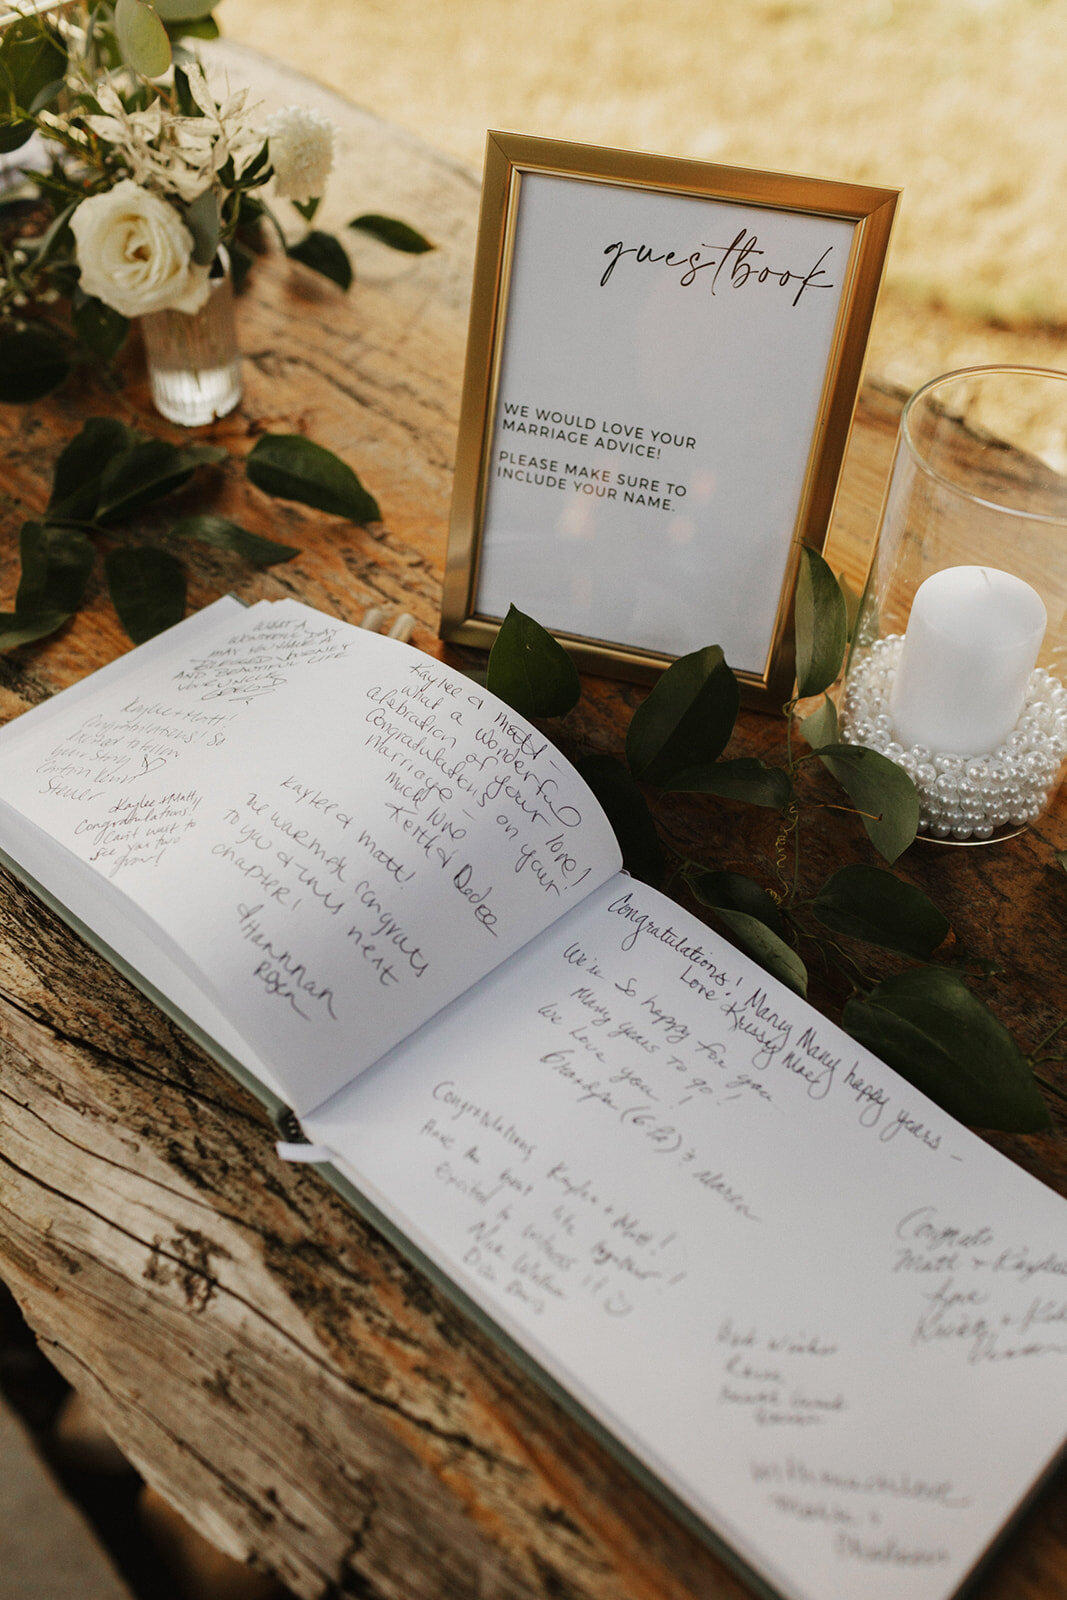 guestbook
WE WOULD LOVE YOUR
MARRIAGE ADVICE!
PLEASE MAKE SURE TO
INCLUDE YOUR NAME.
WHAT A
WONDERFUL DAY
MAY YOU HAVE A
BLESSED JOURNEY
AND BEAUTIFUL LIFE
YOUR UNCLE
GREG
Kaylee + Matt!
Congratulations! So
excited to follow
your story
Steuer
Kaylee & Matt
Congratulations!
Can't wait to
see you two
grow!
Kaylee & Matt -
what a wonderful
celebration of your love!
Congratulations on your
Marriage -
much love
Keith & Dedee
Kaylee & Matt!
The warmest congrats
to you & this next
chapter!
Hannah
Rosen
Congratulations! Many Many happy years -
Love Krissy Mae
We're so happy for you
Many years to go!
We Love you!
Grandpa
Congratulations Kaylee + Matt!
Have the best life together!
Excited to witness it
Congrats
Matt + Kaylee
Love
Best Wishes
With much Love